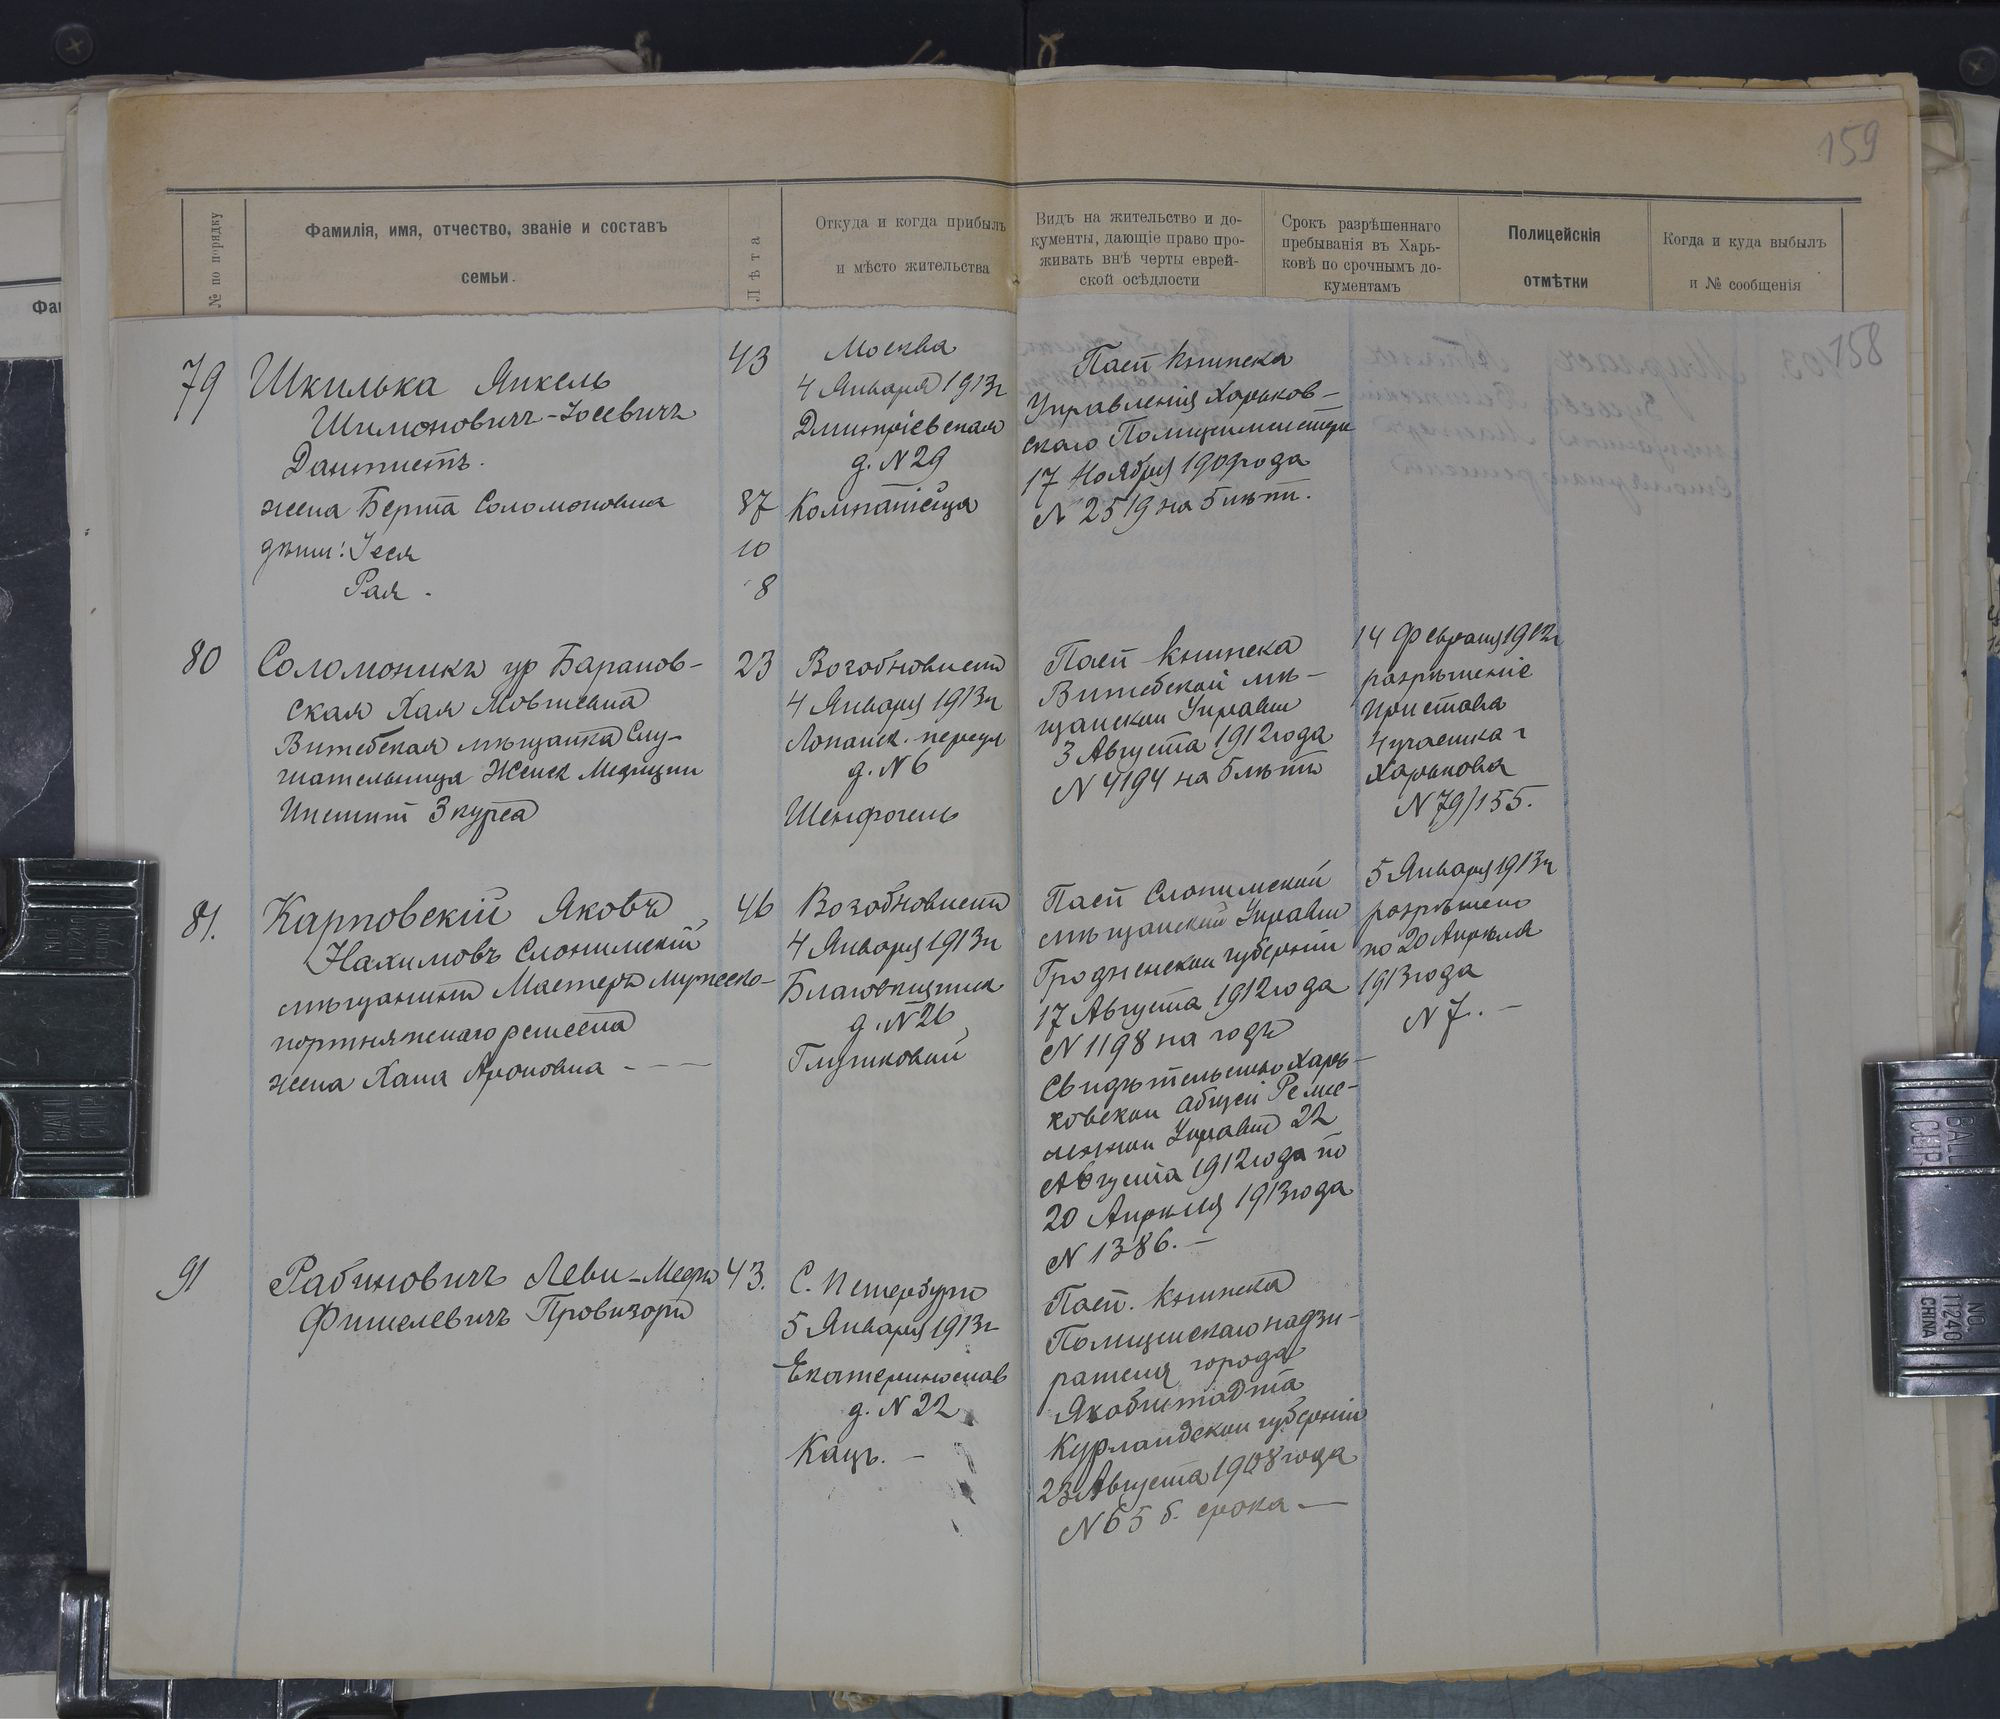 159
№ по порядку
Фамилія, имя, отчество, званіе и составъ
семьи.
Лѣта
Откуда и когда прибылъ
и мѣсто жительства
Видъ на жительство и до-
кументы, дающіе право про-
живать внѣ черты еврей-
ской осѣдлости
Срокъ разрѣшеннаго
пребыванія въ Харь-
ковѣ по срочнымъ до-
кументамъ
Полицейскія
отмѣтки
Когда и куда выбылъ
и № сообщенія
158
79
Шкилька Янкель
Шимоновичъ-Іосевичъ
Дантистъ.
жена Берта Соломоновна
дѣти: Іеся
Рая.
43
37
10
8
Москва
4 Января 1913г
Дмитріевская
д. N 29
Компанѣица
Пасп книжка
Управленія Харьков-
скаго Полицимейстера
17 Ноября 1909 года
N 2519 на 5 лѣтъ.
80
Соломоникъ ур Баранов-
ская Хая Мовшевна
Витебская мѣщанка Слу-
шательница Женск Медицин
Инстит 3 курса
23
Возобновистъ
4 Января 1913г
Лопанск. переул
д. N 6
Шенфогель
Пасп книжка
Витебской мѣ-
щанской Управы
3 Августа 1912 года
N 4194 на 5 лѣтъ
14 Февраля 1912г
разрѣшеніе
Пристава
4 участка г
Харькова
N 79/155.
81.
Карповскій Яковъ
Нахимовъ Слонимскій
мѣщанинъ Мастеръ мужеско-
портняжнаго ремесла
жена Хана Ароновна - — —
46
Возобновистъ
4 Января 1913г
Благовѣщенск
д. N 26
Глушковой
Пасп Слонимской
мѣщанской Управы
Гродненской губерніи
17 Августа 1912 года
N 1198 на годъ
Свидѣтельство Харь-
ковской общей Ремес-
ленной Управы 22
Августа 1912 года по
20 Апрѣля 1913 года
N 1386. —
5 Января 1913г
разрѣшено
по 20 Апрѣля
1913 года
N 7. —
91
Рабиновичъ Леви-Мееръ
Фишелевичъ Провизоръ
43.
С. Петербургъ
5 Января 1913г
Екатеринослав
д. N 22
Кацъ. —
Пасп. книжка
Полицейскаго надзи-
рателя города
Якобштадта
Курляндской губерніи
23 Августа 1908 года
N 65 б. срока —